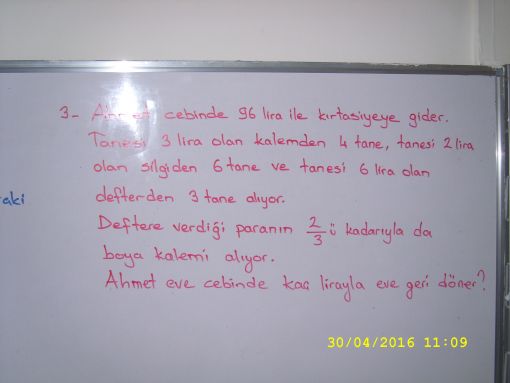 3- Ahmet cebinde 96 lira ile kırtasiyeye gider.
Tanesi 3 lira olan kalemden 4 tane, tanesi 2 lira
olan silgiden 6 tane ve tanesi 6 lira olan
aki
defterden 3 tane alıyor.
Deftere verdiği paranın 2/3 ü kadarıyla da
boya kalemi alıyor.
Ahmet eve cebinde kaç lirayla eve geri döner?
30/04/2016 11:09